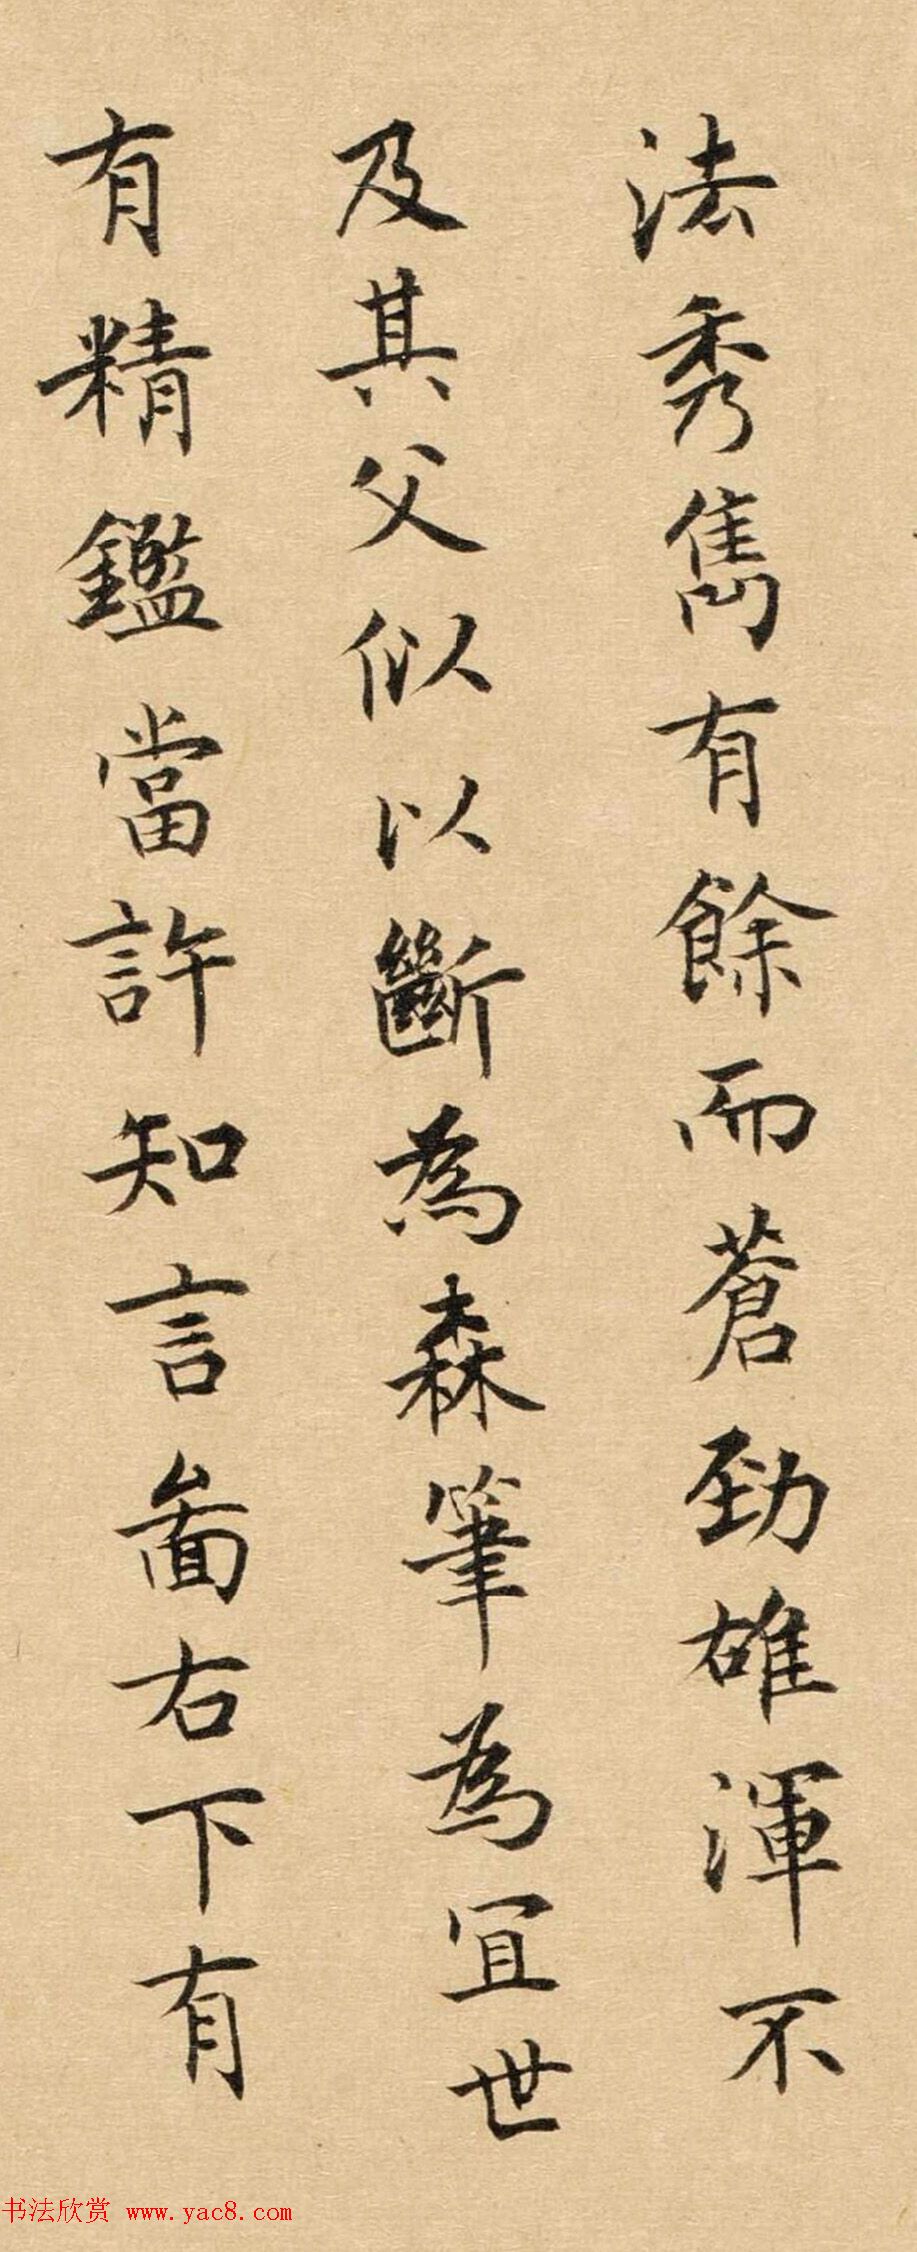 法秀雋有餘而蒼勁雄渾不
及其父似以斷為森筆為宜世
有精鑑當許知言畣右下有
书法欣赏 www.yac8.com